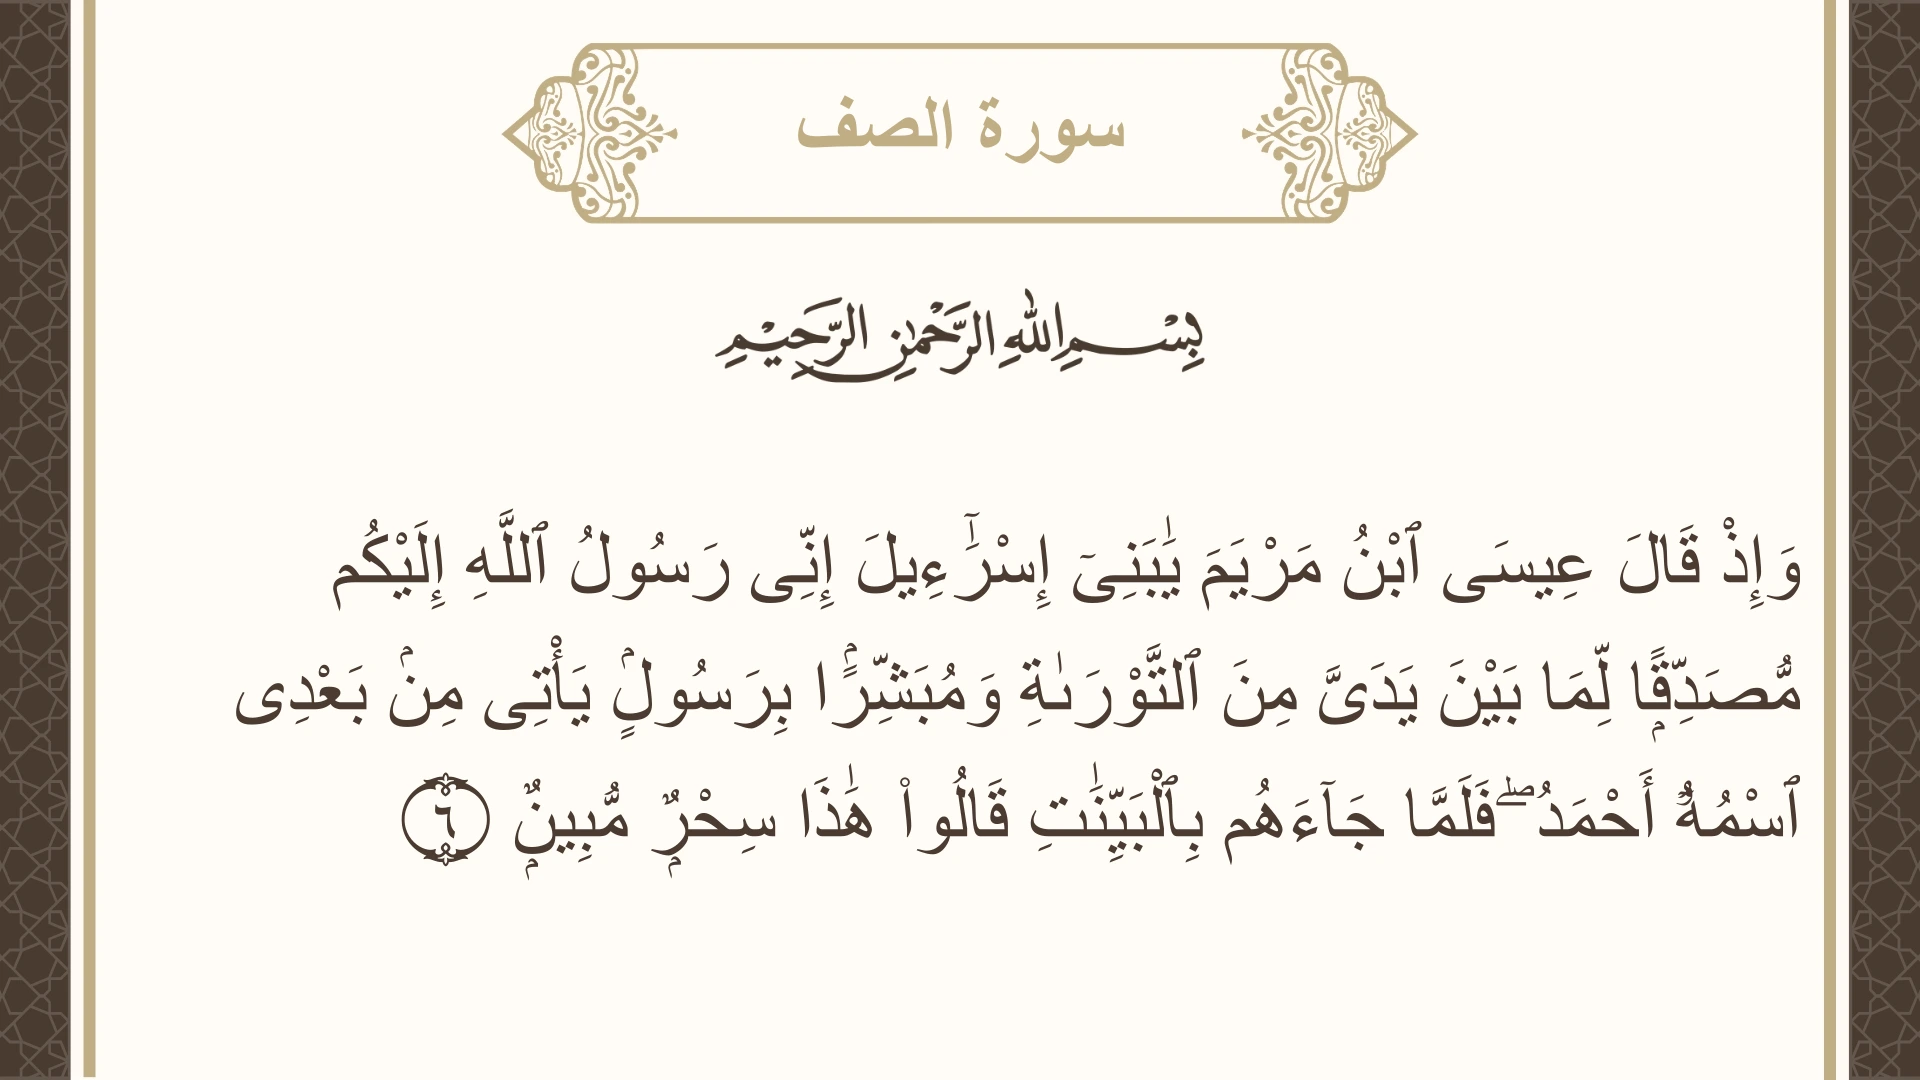 سورة الصف
بِسْمِ اللهِ الرَّحْمٰنِ الرَّحِيْمِ
وَإِذْ قَالَ عِيسَى ٱبْنُ مَرْيَمَ يَٰبَنِىٓ إِسْرَٰٓءِيلَ إِنِّى رَسُولُ ٱللَّهِ إِلَيْكُم
مُّصَدِّقًۭا لِّمَا بَيْنَ يَدَىَّ مِنَ ٱلتَّوْرَىٰةِ وَمُبَشِّرًۢا بِرَسُولٍۢ يَأْتِى مِنۢ بَعْدِى
ٱسْمُهُۥٓ أَحْمَدُ ۖ فَلَمَّا جَآءَهُم بِٱلْبَيِّنَٰتِ قَالُوا۟ هَٰذَا سِحْرٌۭ مُّبِينٌۭ ٦